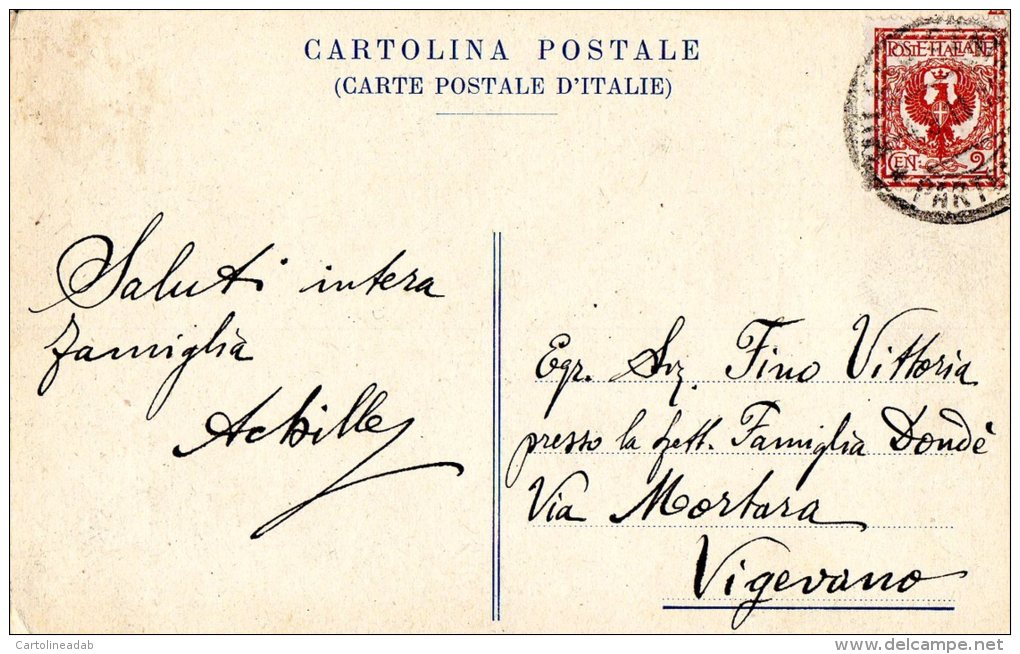 CARTOLINA POSTALE
(CARTE POSTALE D'ITALIE)
POSTE ITALIANE
CEN: 2
PART
Saluti intera
famiglia
Achille
Egr. Sig. Fino Vittoria
presso la Spett. Famiglia Dondè
Via Mortara
Vigevano
Cartolineadab
www.delcampe.net